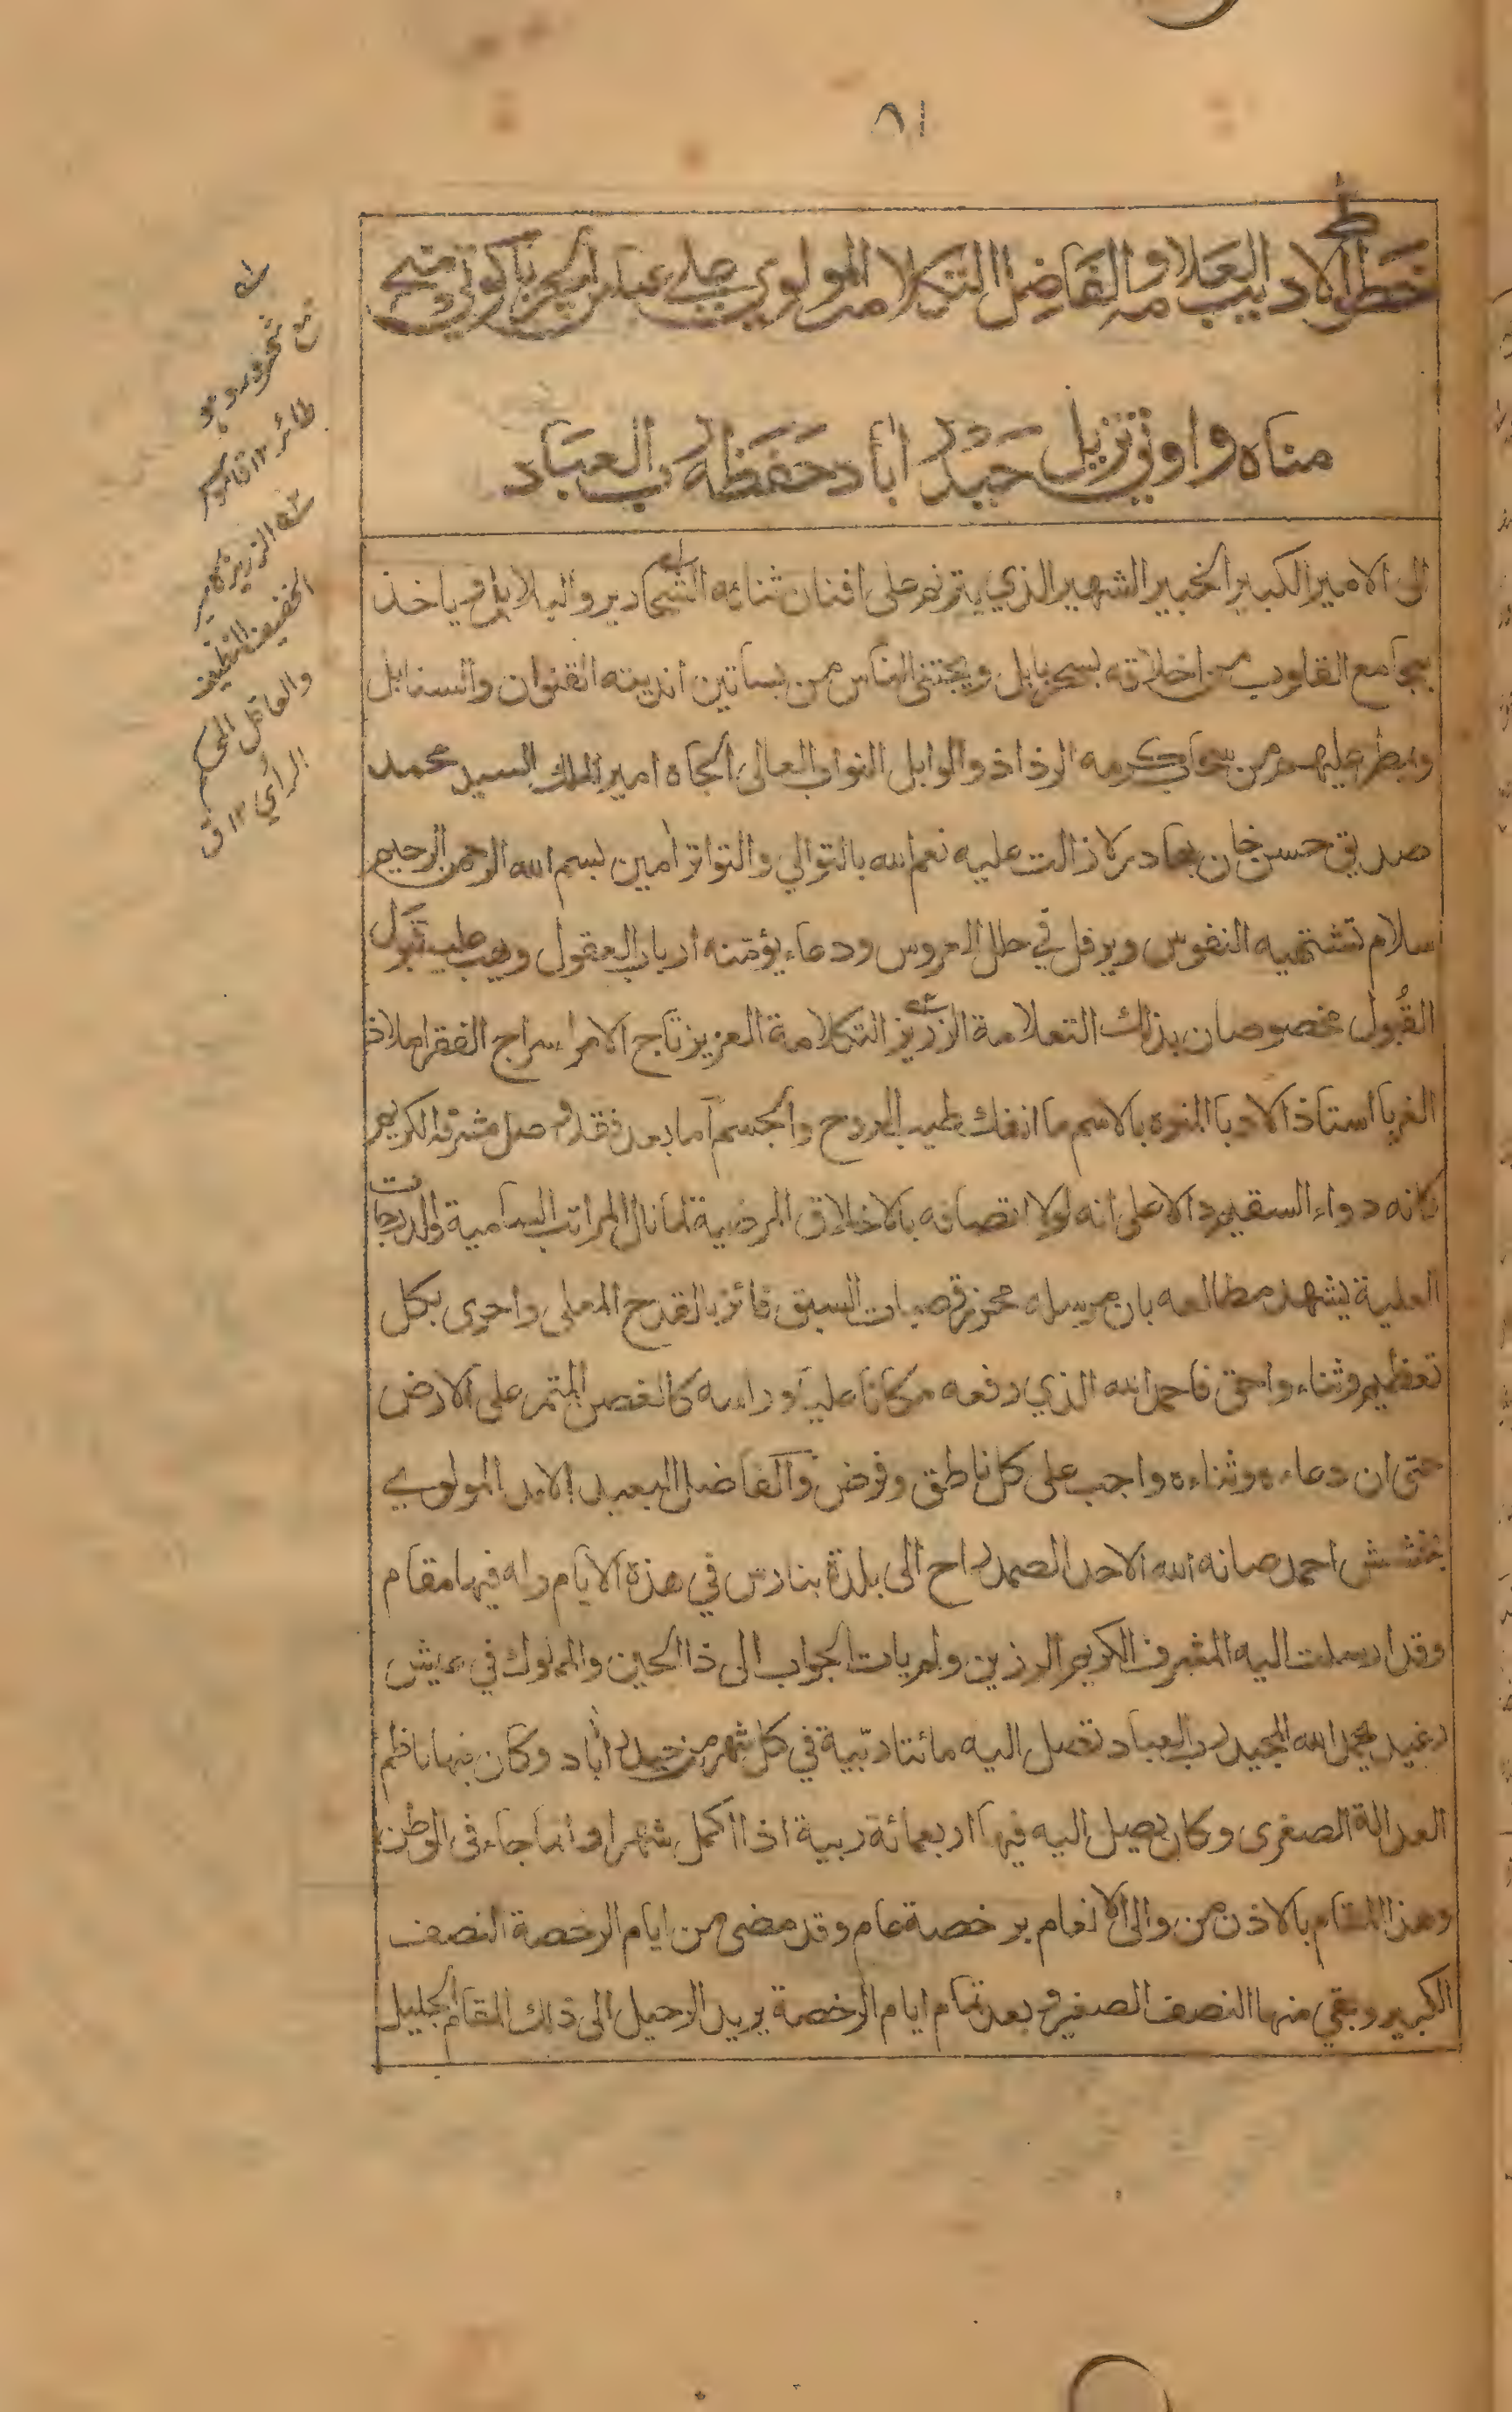 ٨١
خط الاديب العلامه والفاضل التكلامه المولوي علي عباس الچرياكوتي متع
مناه واوتي نزيل حيدر اباد حفظه رب العباد
الى الامير الكبير الخبير الشهير الذي يترنم على افنان ثنائه الشحادير والبلابل وياخذ
بمجامع القلوب من اخلاقه بسحر بابل ويجتني الناس من بساتين اندیته القنوان والسنابل
ويمطر عليهم من سحاب كرمه الرذاذ والوابل النواب العالى الجاه امير الملك السيد محمد
صديق حسن خان بهادر لا زالت عليه نعم الله بالتوالي والتواتر امين بسم الله الرحمن الرحيم
سلام تشتهيه النفوس ويرفل في حلل العروس ودعاء يؤمنه ارباب العقول ويهب عليه قبول
القُبول مخصوصان بذلك التعلامة الزرّيز التكلامة العزيز تاج الامرا سراج الفقرا ملاذ
الغربا استاذ الادبا المنوه بالاسم ما انفك طيب الروح والجسم اما بعد فقد وصل مشرفه الكريم
كانه دواء السقيم دالا على انه لولا اتصافه بالاخلاق المرضية لما نال المراتب السامية والدرجات
العلية يشهد مطالعه بان مرسله محرز قصبات السبق فائز بالقدح المعلى واحرى بكل
تعظيم وثناء واحق فاحمد الله الذي رفعه مكانا عليا وراسه كالغصن المثمر على الارض
حتى ان دعاءه وثناءه واجب على كل ناطق وفرض والفاضل البعيد الامد المولوي
بخشش احمد صانه الله الاحد الصمد راح الى بلدة بنارس في هذة الايام وله فيها مقام
وقد ارسلت اليه المشرف الكريم الرزين ولم يات الجواب الى ذا الحين والمملوك في عيش
رغيد بحمد الله المجيد رب العباد تصل اليه مائتا ربّية في كل شهر من حيدر أباد وكان فيها ناظم
العدالة الصغرى وكان يصل اليه فيها اربعمائة ربية اذا اكمل شهرا وانما جاء فى الوطن
وهذا المقام بالاذن من والى الانعام برخصة عام وقد مضى من ايام الرخصة النصف
الكبير وبقي منها النصف الصغير وبعد تمام ايام الرخصة يريد الرحيل الى ذلك المقام الجليل
طائر ١٢ قاموس
الزرير كامير
الخفيف النظيف
والعاقل المحكم
الرأي ١٢ ق